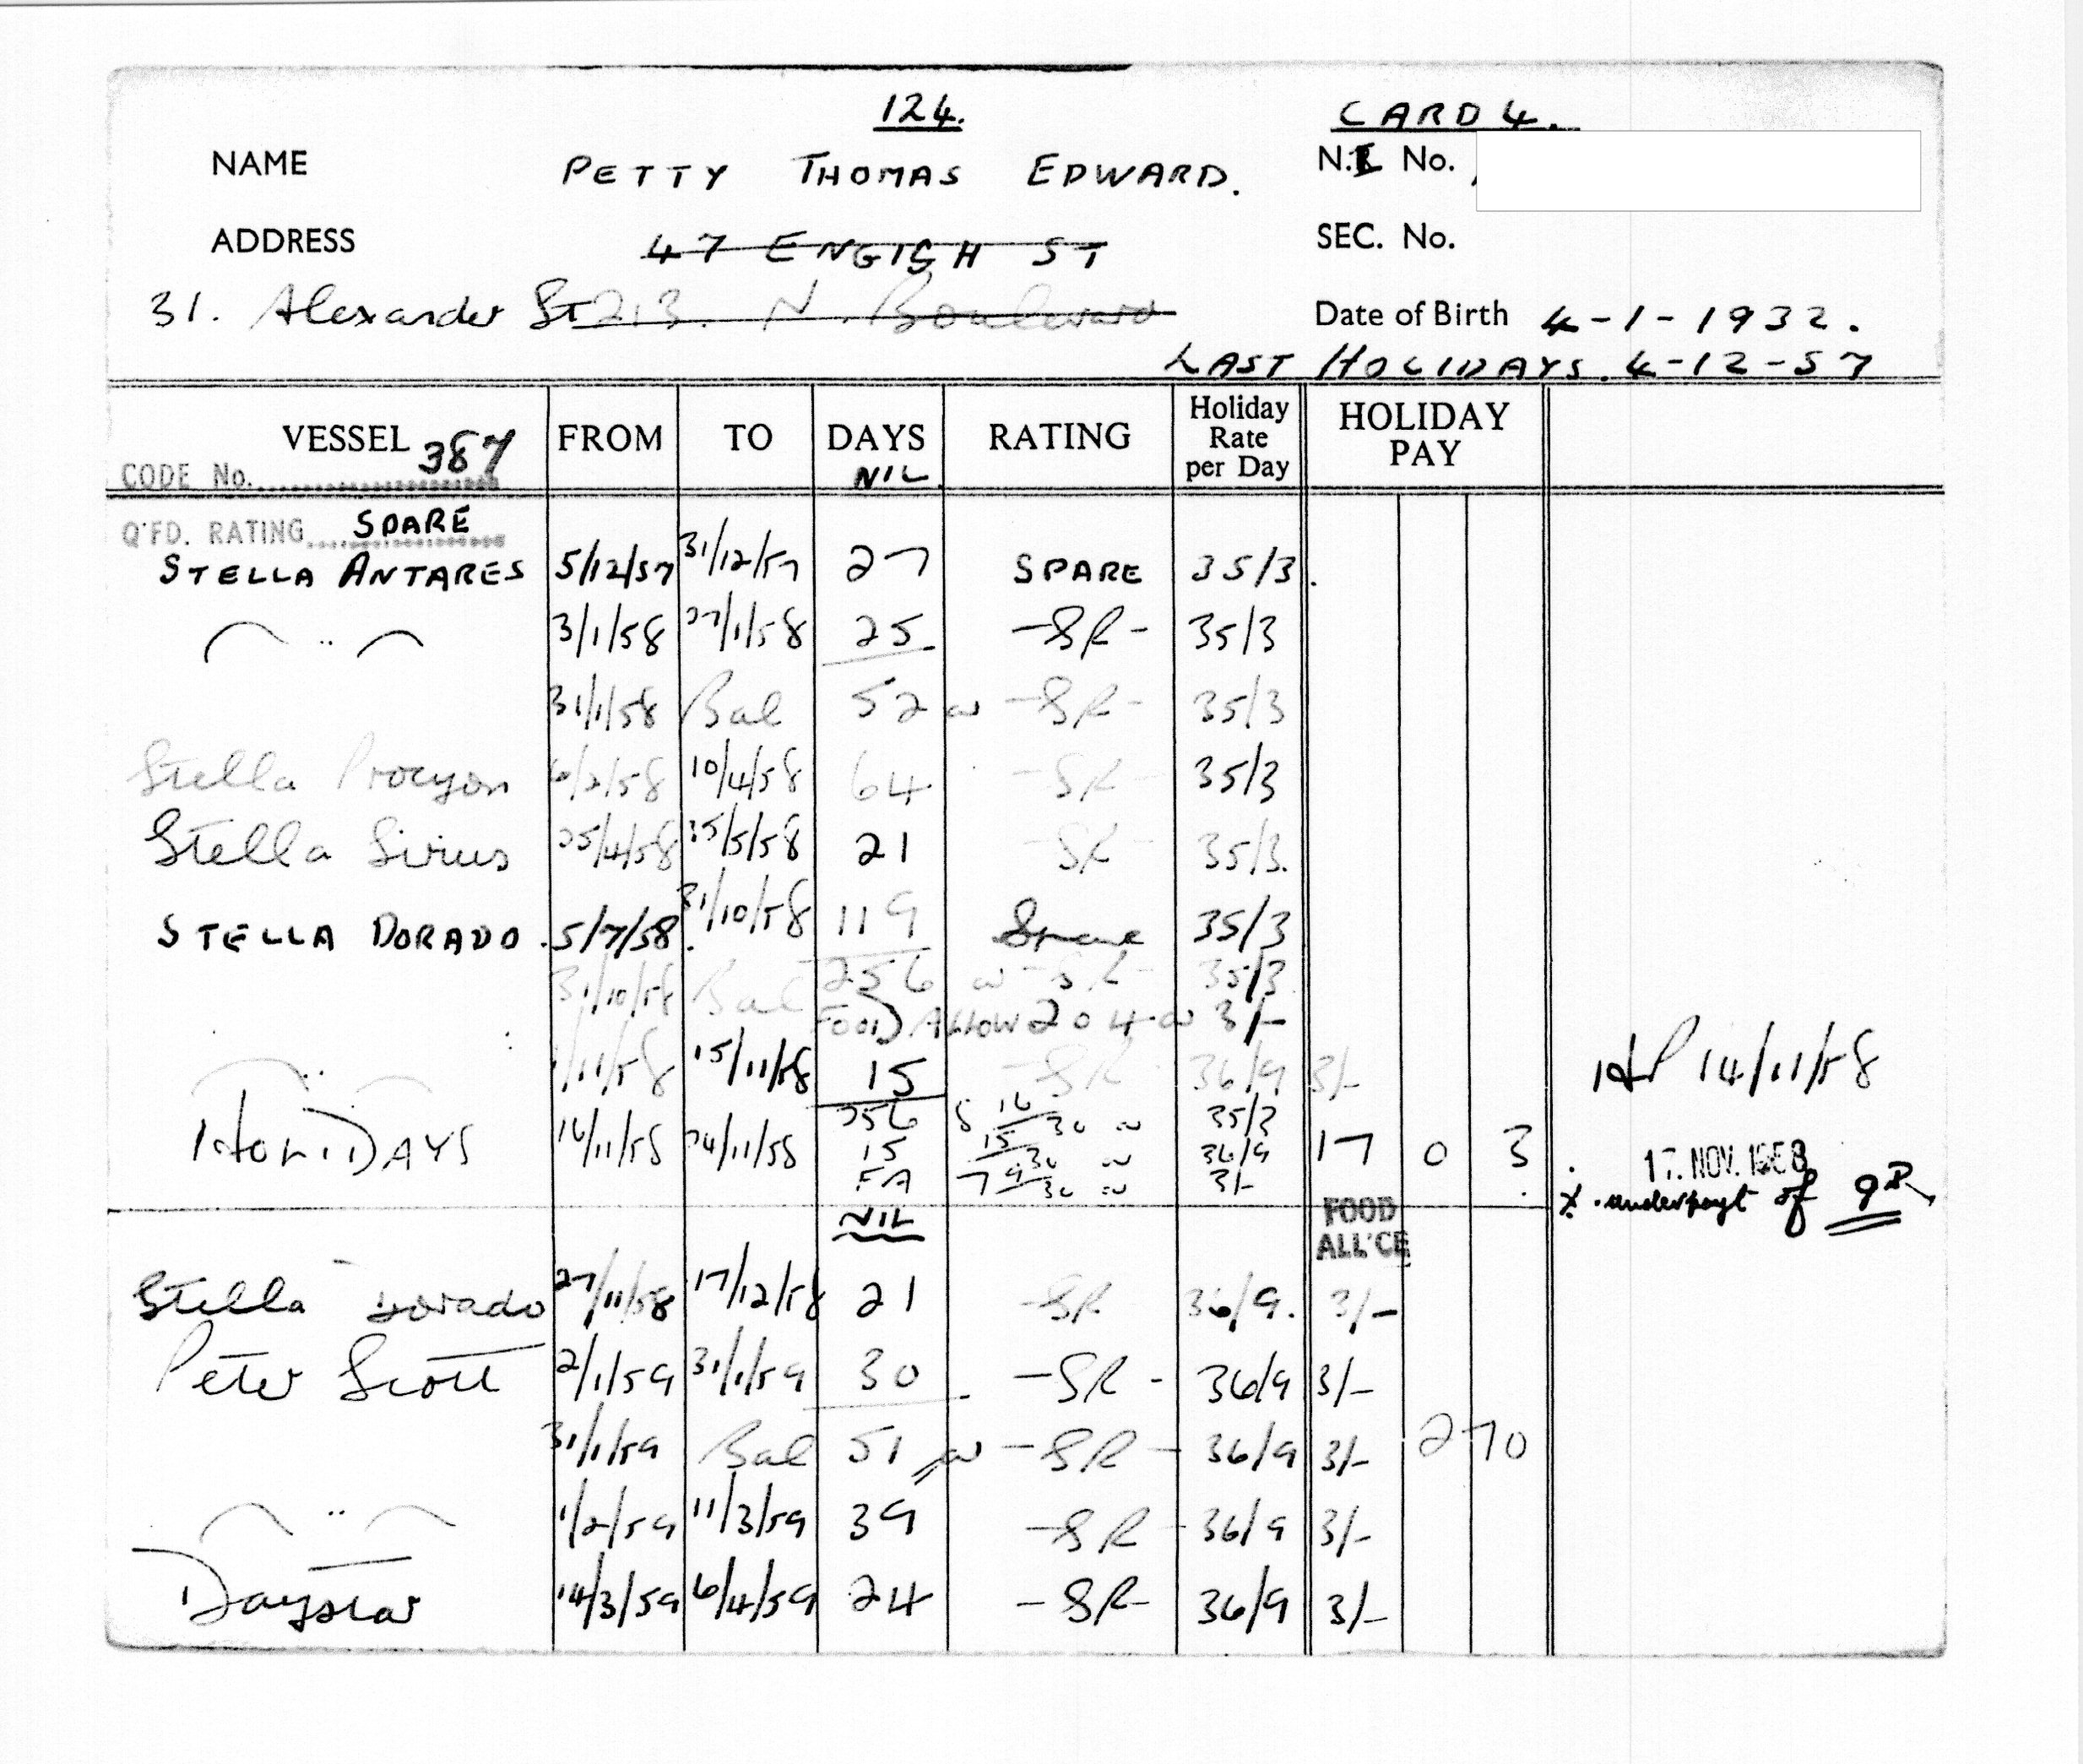 124.
CARD 4.
NAME PETTY THOMAS EDWARD. N.I. No.
ADDRESS 47 ENGISH ST SEC. No.
31. Alexander St 213. N. Boulevard Date of Birth 4-1-1932.
LAST HOLIDAYS. 4-12-57
VESSEL 387 FROM TO DAYS RATING Holiday Rate per Day HOLIDAY PAY
CODE No. NIL
Q'FD. RATING SPARE
STELLA ANTARES 5/12/57 31/12/57 27 SPARE 35/3.
" 3/1/58 27/1/58 25 - SR - 35/3
31/1/58 Bal 52 @ - SR - 35/3
Stella Procyon 6/2/58 10/4/58 64 - SR 35/3
Stella Sirius 25/4/58 15/5/58 21 - SR - 35/3.
STELLA DORADO. 5/7/58. 31/10/58 119 Spare 35/3
31/10/58 Bal 256 @ - SR - 35/3
FOOD ALLOW 204 @ 3/-
" 1/11/58 15/11/58 15 - SR 36/9 3/- HP 14/11/58
HOLIDAYS 16/11/58 24/11/58 256 8 16/30 @ 35/3
15 15/30 @ 36/9 17 0 3 17. NOV. 1958
FA 7 9/30 @ 3/-
x underpayt of 9D
NIL FOOD ALL'CE
Stella Dorado 27/11/58 17/12/58 21 - SR 36/9. 3/-
Peter Scott 2/1/59 31/1/59 30 - SR - 36/9 3/-
31/1/59 Bal 51 @ - SR - 36/9 3/- 270
" 1/2/59 11/3/59 39 - SR - 36/9 3/-
Daystar 14/3/59 6/4/59 24 - SR - 36/9 3/-